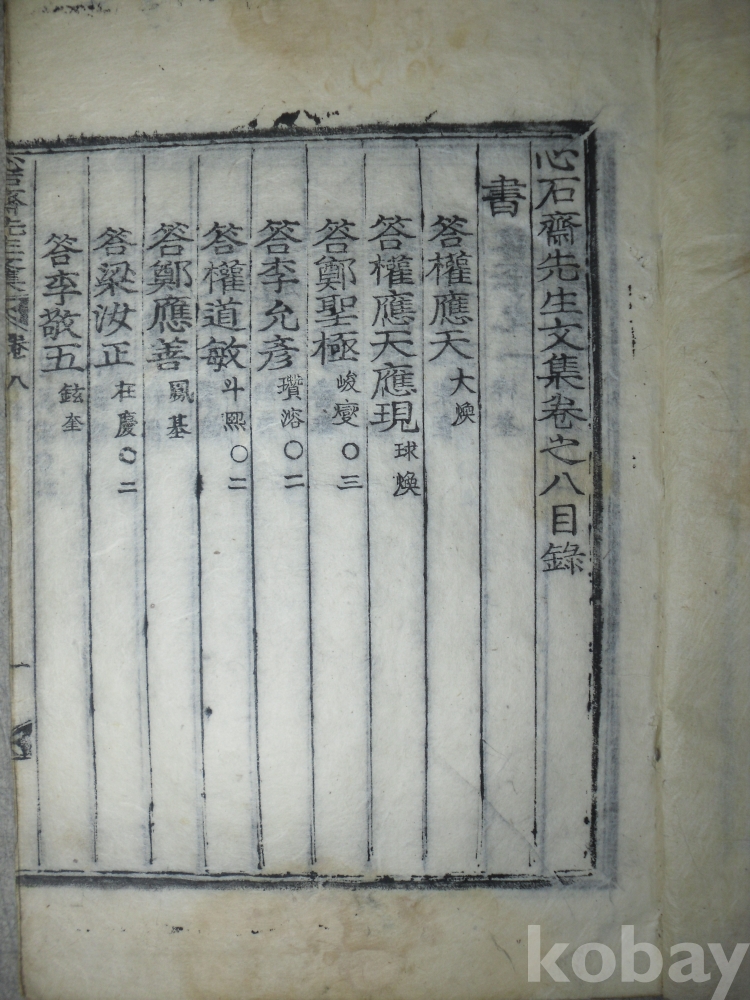 心石齋先生文集卷之八目錄
書
答權應天 大煥
答權應天應現 球煥
答鄭聖極 峻燮〇三
答李允彥 瓚溶〇二
答權道敏 斗熙〇二
答鄭應善 基
答梁汝正 在慶〇二
答李敬五 鉉奎
心石齋先生文集 卷八
一
kobay